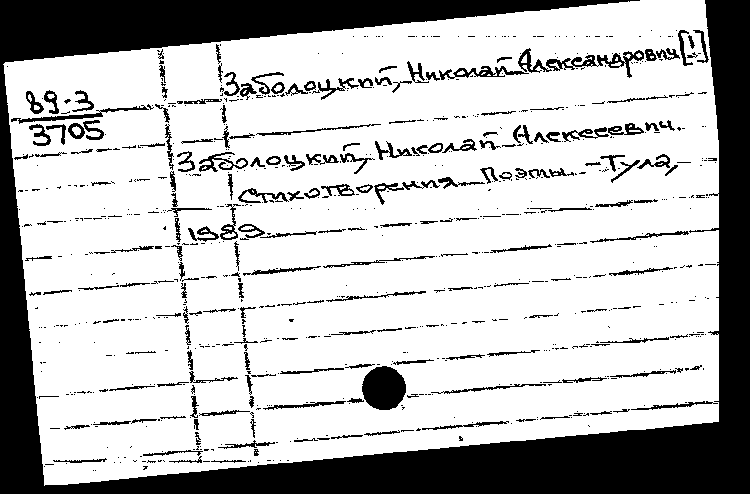 89-3
3705
Заболоцкий, Николай Александрович [!]
Заболоцкий, Николай Алексеевич.
Стихотворения. Поэмы. - Тула,
1989